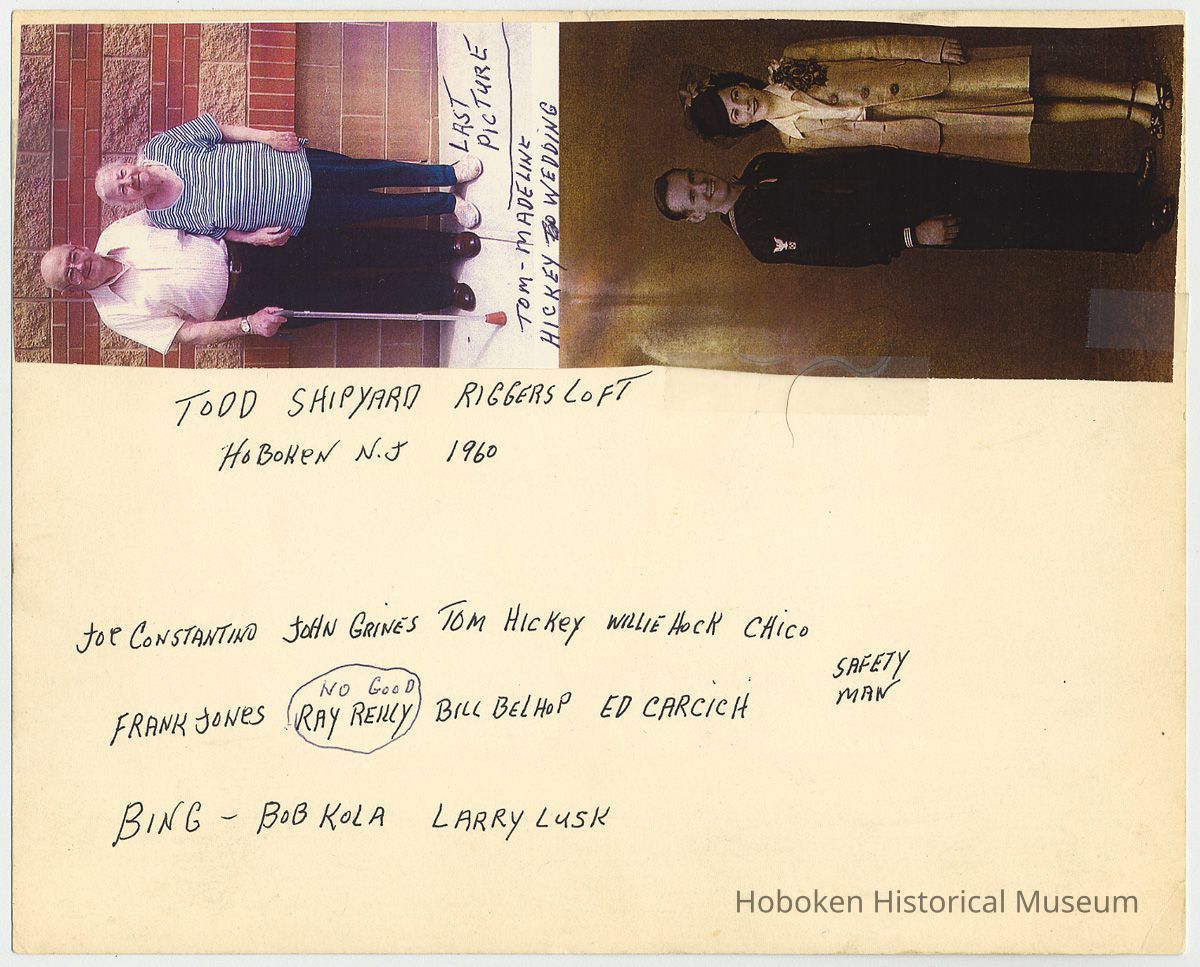 LAST
PICTURE
TOM - MADELINE
HICKEY WEDDING
TODD SHIPYARD RIGGERS LOFT
HOBOKEN N.J 1960
JOE CONSTANTINO JOHN GRINES TOM HICKEY WILLIE HOCK CHICO
SAFETY
MAN
NO GOOD
FRANK JONES RAY REILLY BILL BELHOP ED CARCICH
BING - BOB KOLA LARRY LUSK
Hoboken Historical Museum